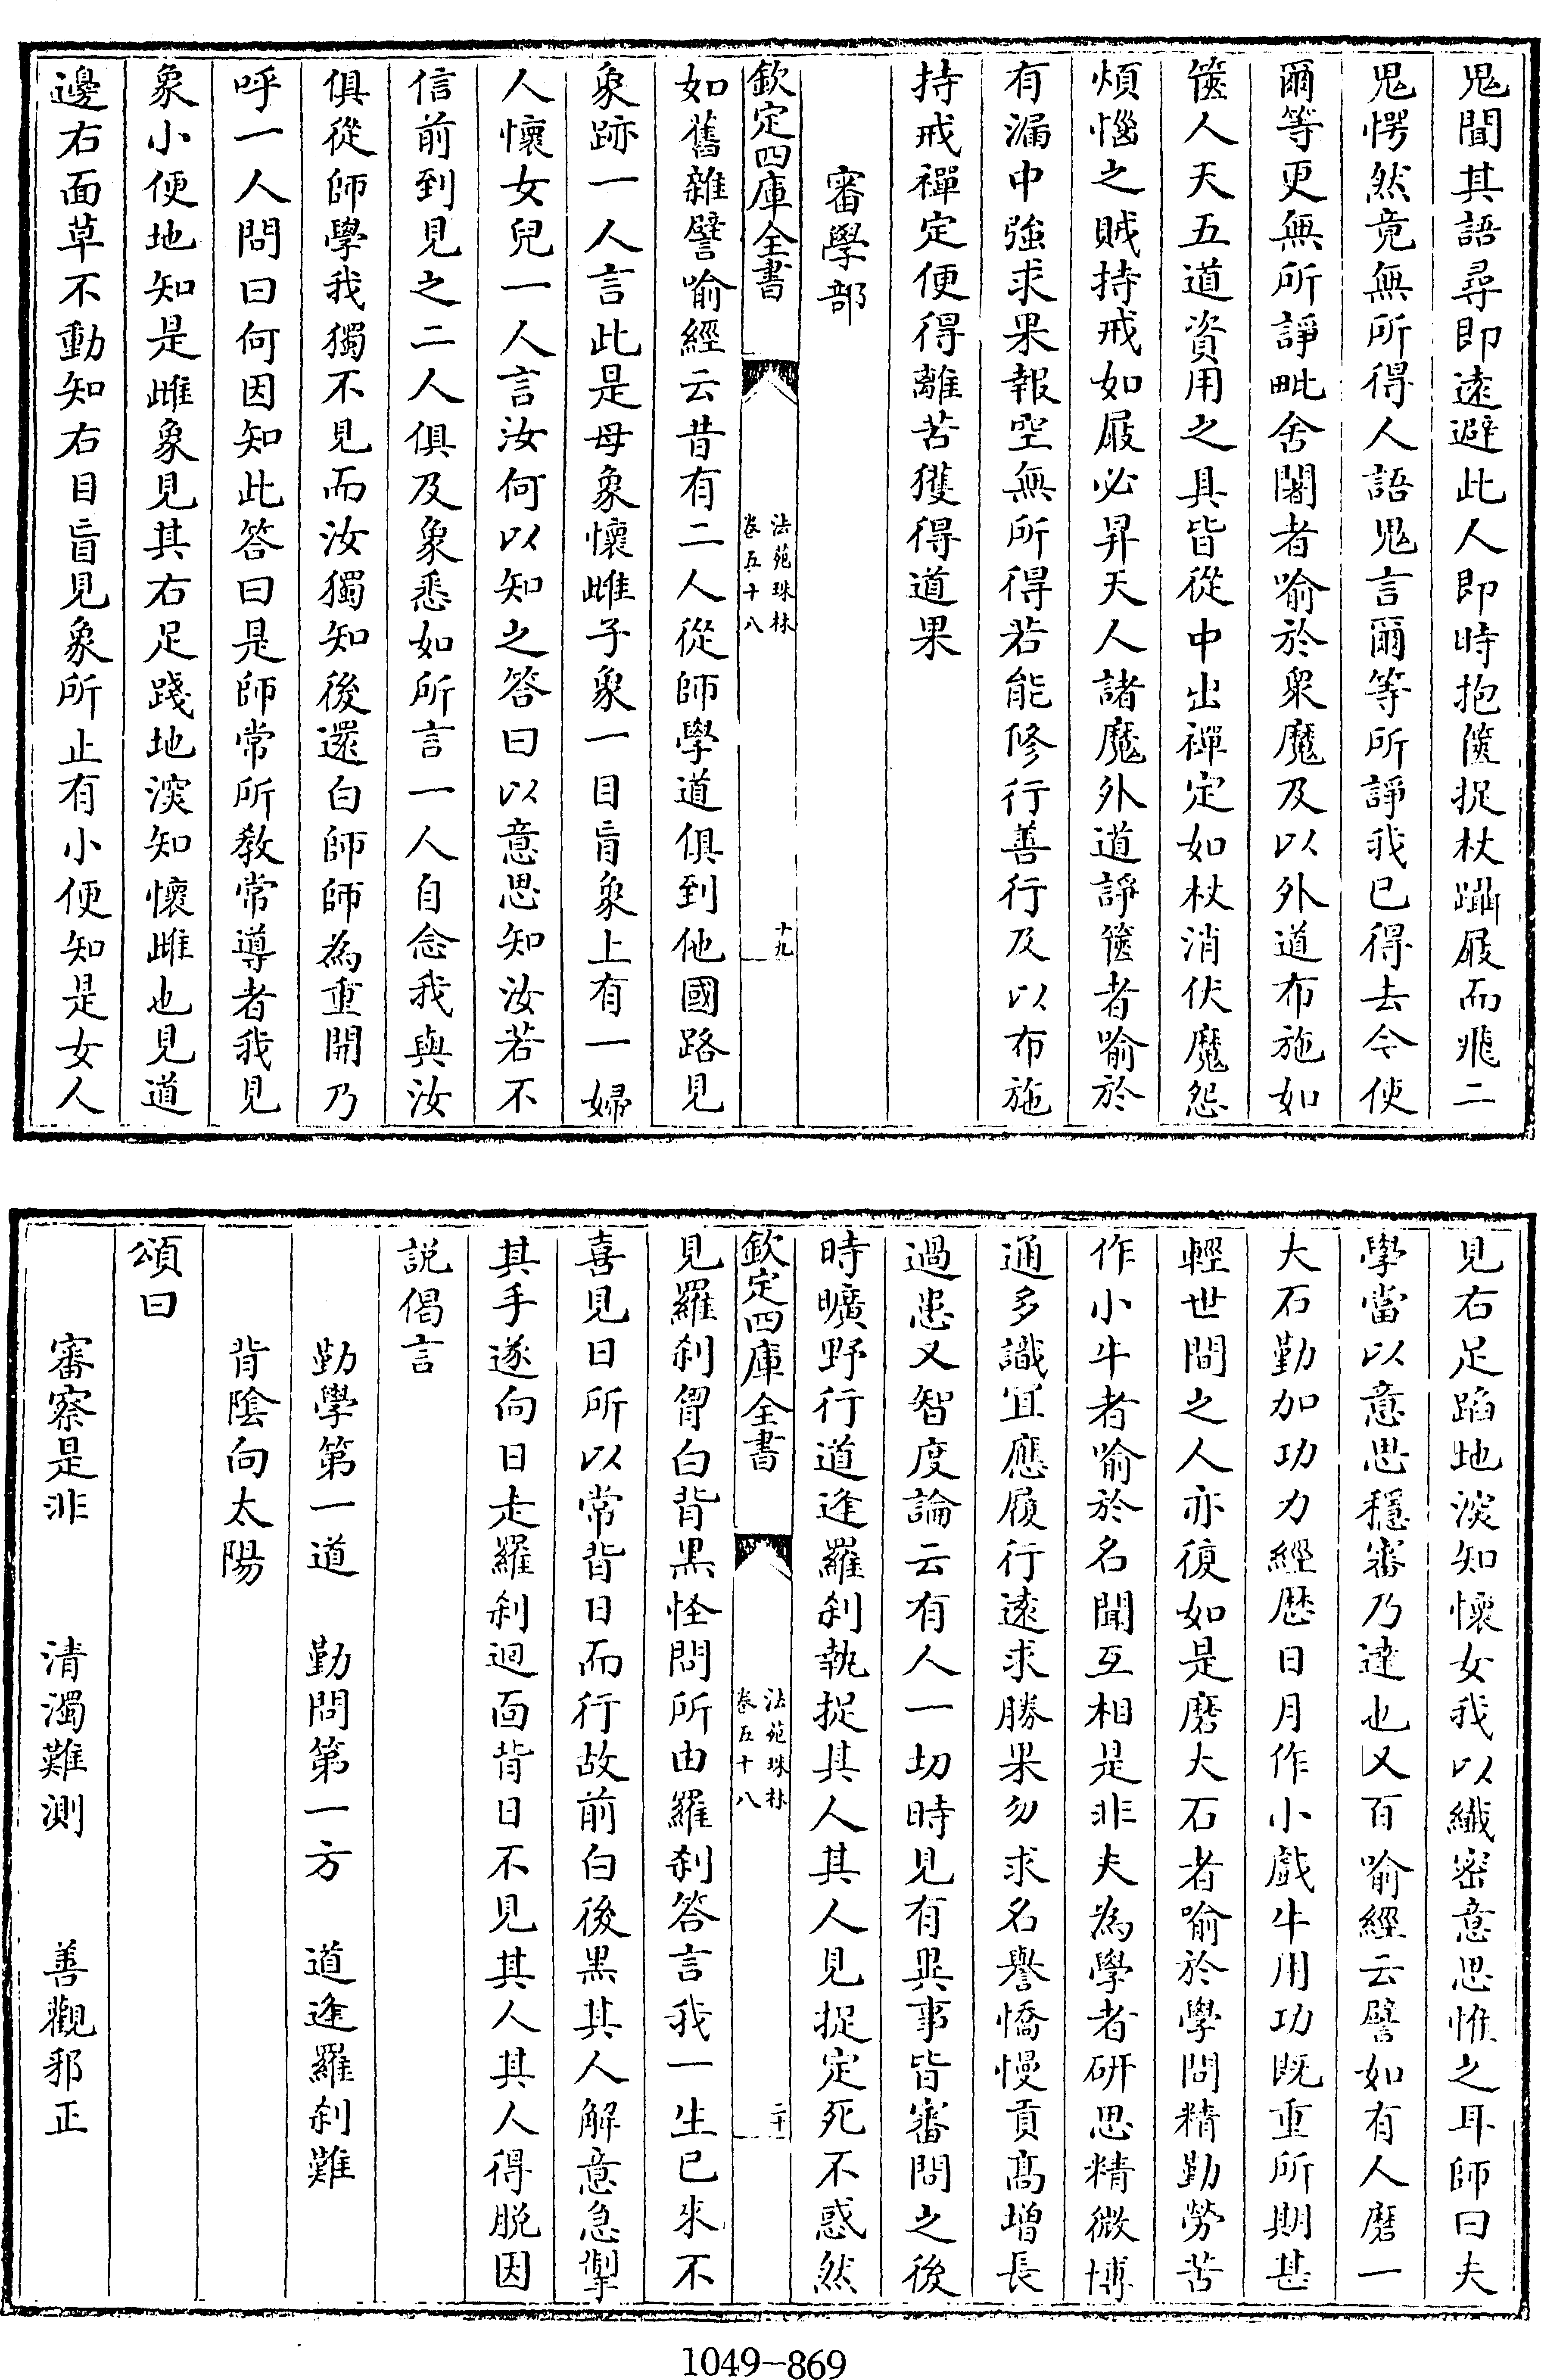 鬼聞其語尋即逺避此人即時抱篋捉杖躡屐而飛二
鬼愕然竟無所得人語鬼言爾等所諍我已得去今使
爾等更無所諍毗舍闍者喻於衆魔及以外道布施如
篋人天五道資用之具皆從中出禪定如杖消伏魔怨
煩惱之賊持戒如屐必昇天人諸魔外道諍篋者喻於
有漏中強求果報空無所得若能修行善行及以布施
持戒禪定便得離苦獲得道果
審學部
欽定四庫全書
法苑珠林
卷五十八
十九
如舊雜譬喻經云昔有二人從師學道俱到他國路見
象跡一人言此是母象懷雌子象一目盲象上有一婦
人懷女兒一人言汝何以知之答曰以意思知汝若不
信前到見之二人俱及象悉如所言一人自念我與汝
俱從師學我獨不見而汝獨知後還白師師為重開乃
呼一人問曰何因知此答曰是師常所教常導者我見
象小便地知是雌象見其右足踐地深知懷雌也見道
邊右面草不動知右目盲見象所止有小便知是女人
見右足蹈地深知懷女我以纎密意思惟之耳師曰夫
學當以意思穩審乃達也又百喻經云譬如有人磨一
大石勤加功力經歴日月作小戯牛用功既重所期甚
輕世間之人亦復如是磨大石者喻於學問精勤勞苦
作小牛者喻於名聞互相是非夫為學者研思精微博
通多識宜應履行逺求勝果勿求名譽憍慢貢髙增長
過患又智度論云有人一切時見有異事皆審問之後
時曠野行道逢羅刹執捉其人其人見捉定死不惑然
欽定四庫全書
法苑珠林
卷五十八
二十
見羅刹胷白背黒怪問所由羅刹答言我一生已來不
喜見日所以常背日而行故前白後黒其人解意急掣
其手遂向日走羅刹迴面背日不見其人其人得脱因
説偈言
勤學第一道　勤問第一方　道逢羅刹難
背陰向太陽
頌曰
審察是非　清濁難測　善觀邪正
1049-869